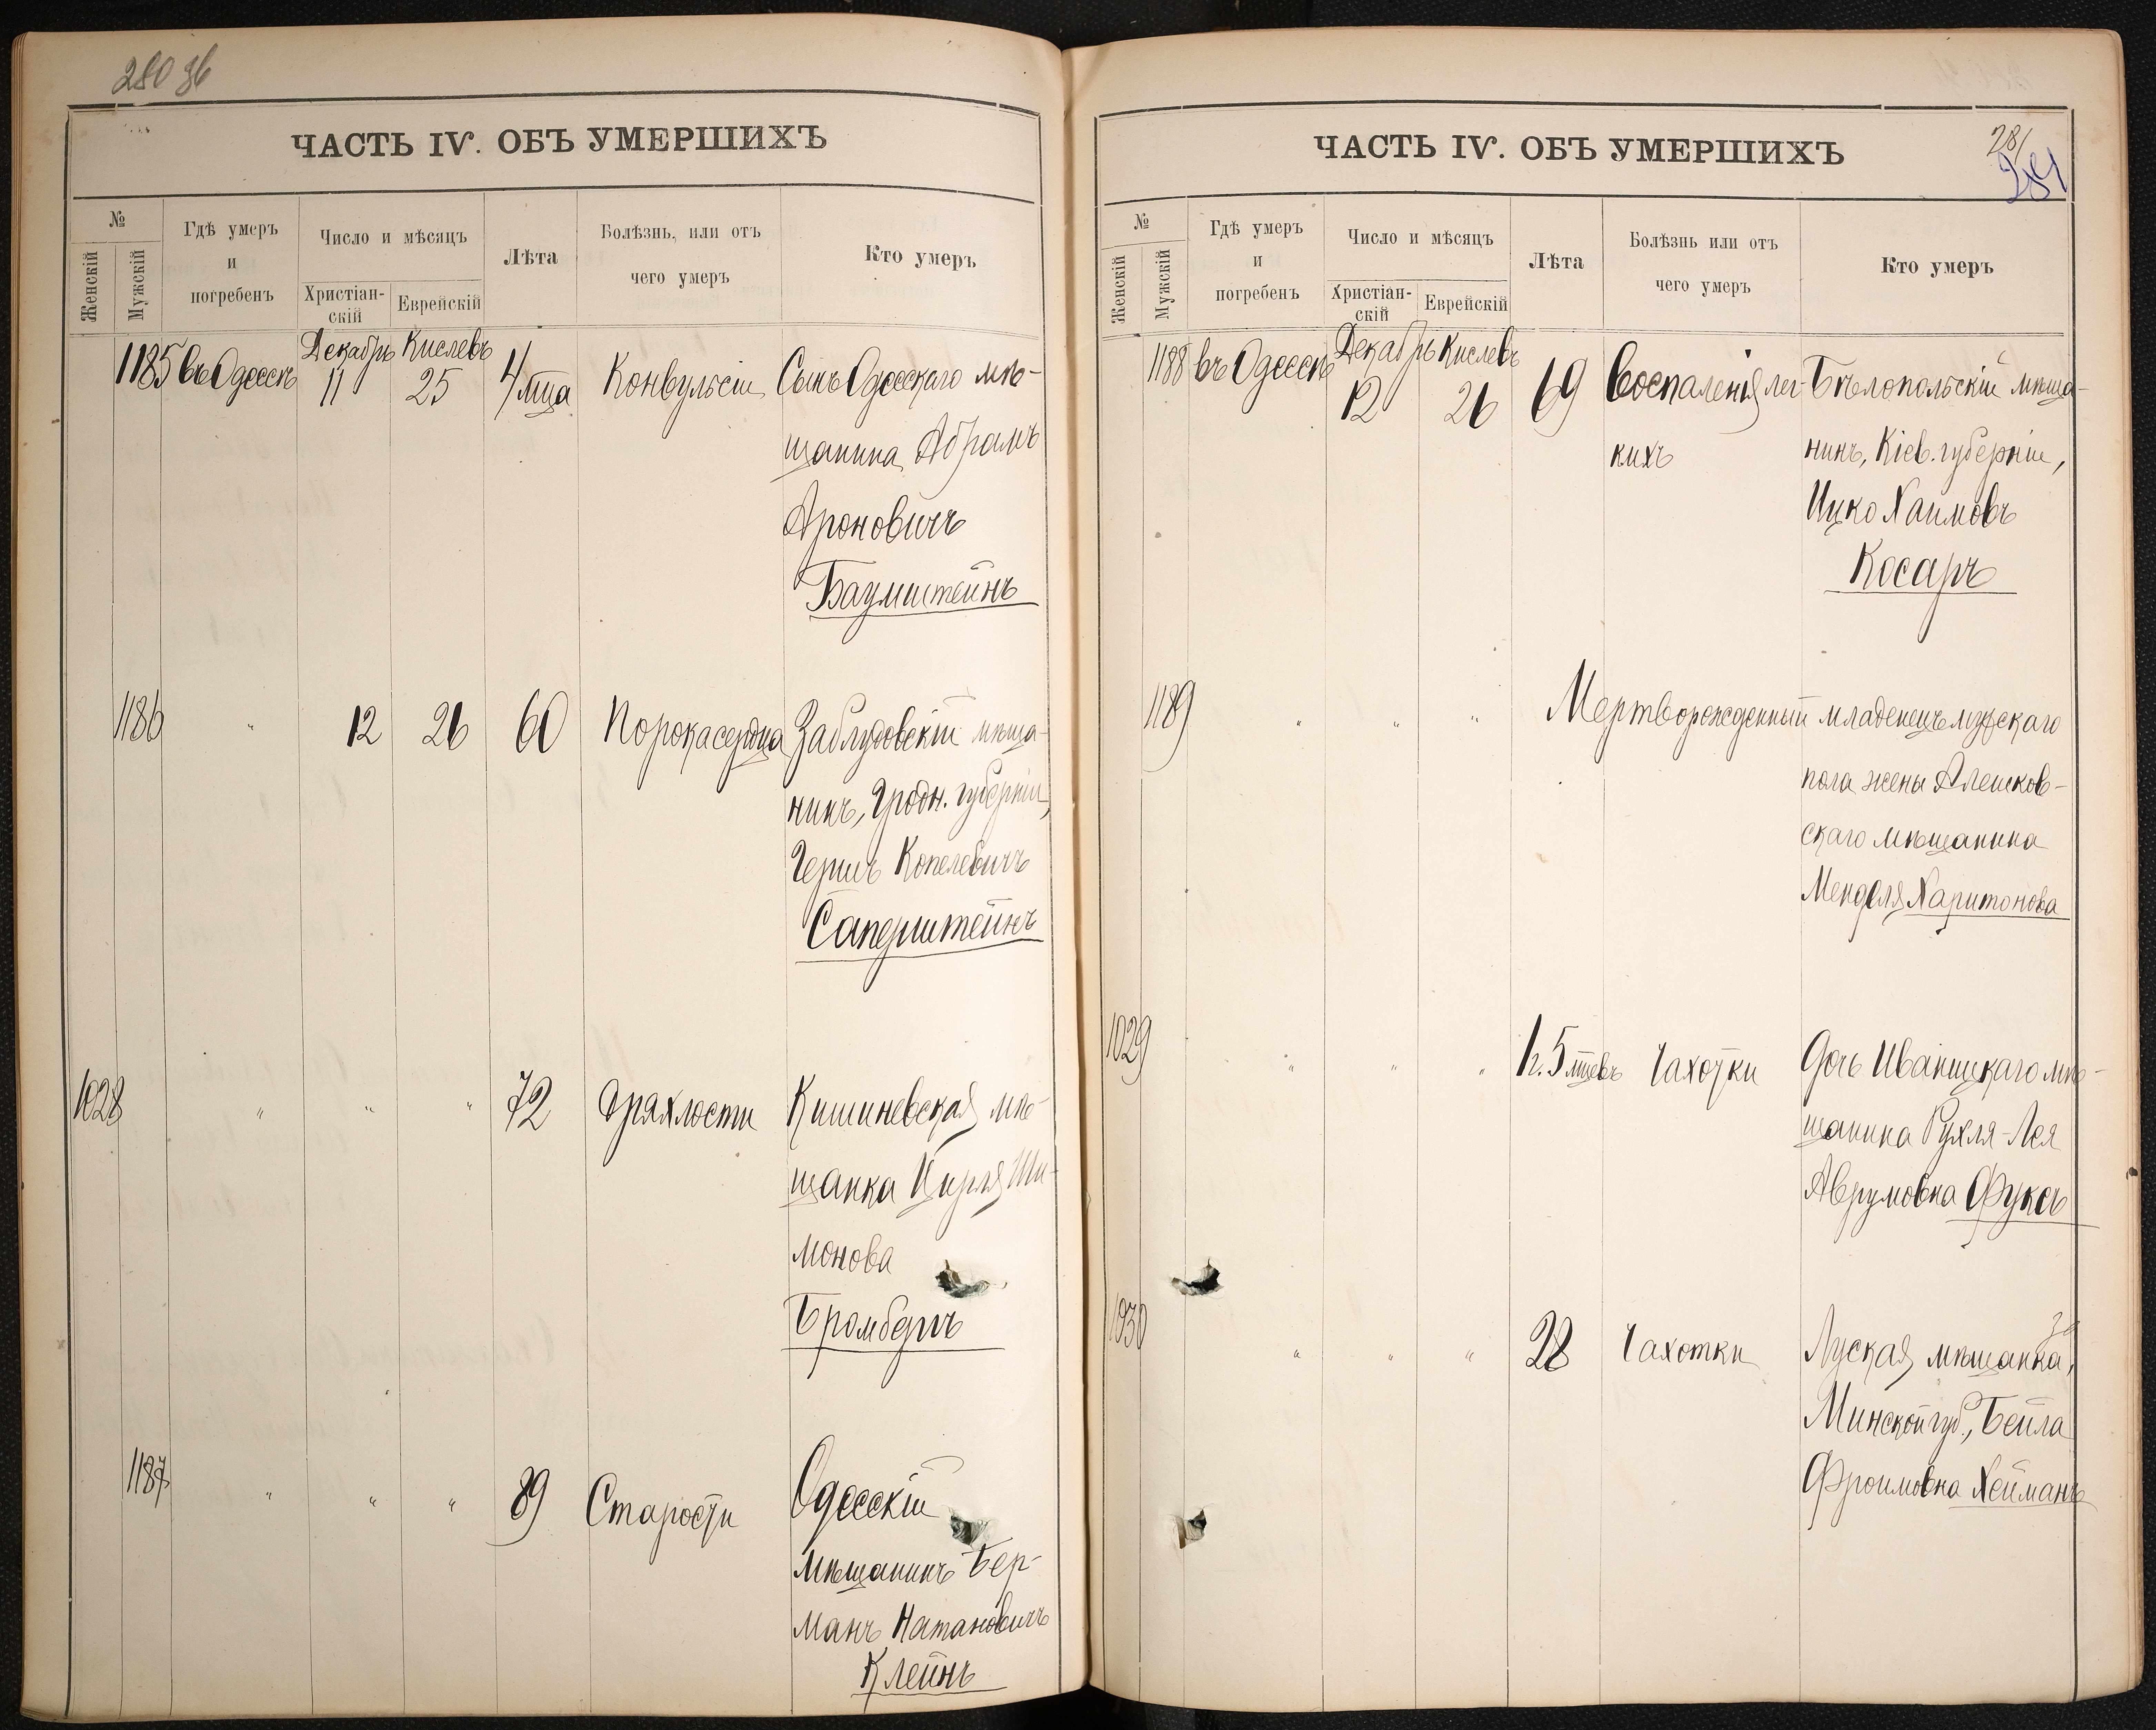 280 зв
ЧАСТЬ IV. ОБЪ УМЕРШИХЪ
№
Женскій
Мужскій
Гдѣ умеръ
и
погребенъ
Число и мѣсяцъ
Христіан-
скій
Еврейскій
Лѣта
Болѣзнь, или отъ
чего умеръ
Кто умеръ
Декабрь Кислевъ
1185 въ Одессѣ 11 25 4 мца Конвульсіи Сынъ Одесскаго мѣ-
щанина Абрамъ
Ароновичъ
Баумштейнъ
1186 " 12 26 60 Порока сердца Заблудовскій мѣща-
нинъ, Гродн. губерніи,
Гершъ Копелевичъ
Саперштейнъ
1028 " " " 72 Дряхлости Кишиневская мѣ-
щанка Цирля Ши-
монова
Бромбергъ
1187 " " " 89 Старости Одесскій
мѣщанинъ Бер-
манъ Натановичъ
Клейнъ
ЧАСТЬ IV. ОБЪ УМЕРШИХЪ
281
281
№
Женскій
Мужскій
Гдѣ умеръ
и
погребенъ
Число и мѣсяцъ
Христіан-
скій
Еврейскій
Лѣта
Болѣзнь или отъ
чего умеръ
Кто умеръ
Декабрь Кислевъ
1188 въ Одессѣ 12 26 69 Воспаленія лег- Бѣлопольскій мѣща-
кихъ нинъ, Кіев. губерніи,
Ицко Хаимовъ
Косаръ
1189 " " " Мертворожденный младенецъ мужскаго
пола жены Алешков-
скаго мѣщанина
Менделя Харитонова
1029 " " " 1 г. 5 мцевъ Чахотки Дочь Иваницкаго мѣ-
щанина Рухля-Лея
Аврумовна Фуксъ
1030 " " " 28 Чахотки Луская мѣщанка,
Минской губ., Бейла
Фроимовна Хейманъ